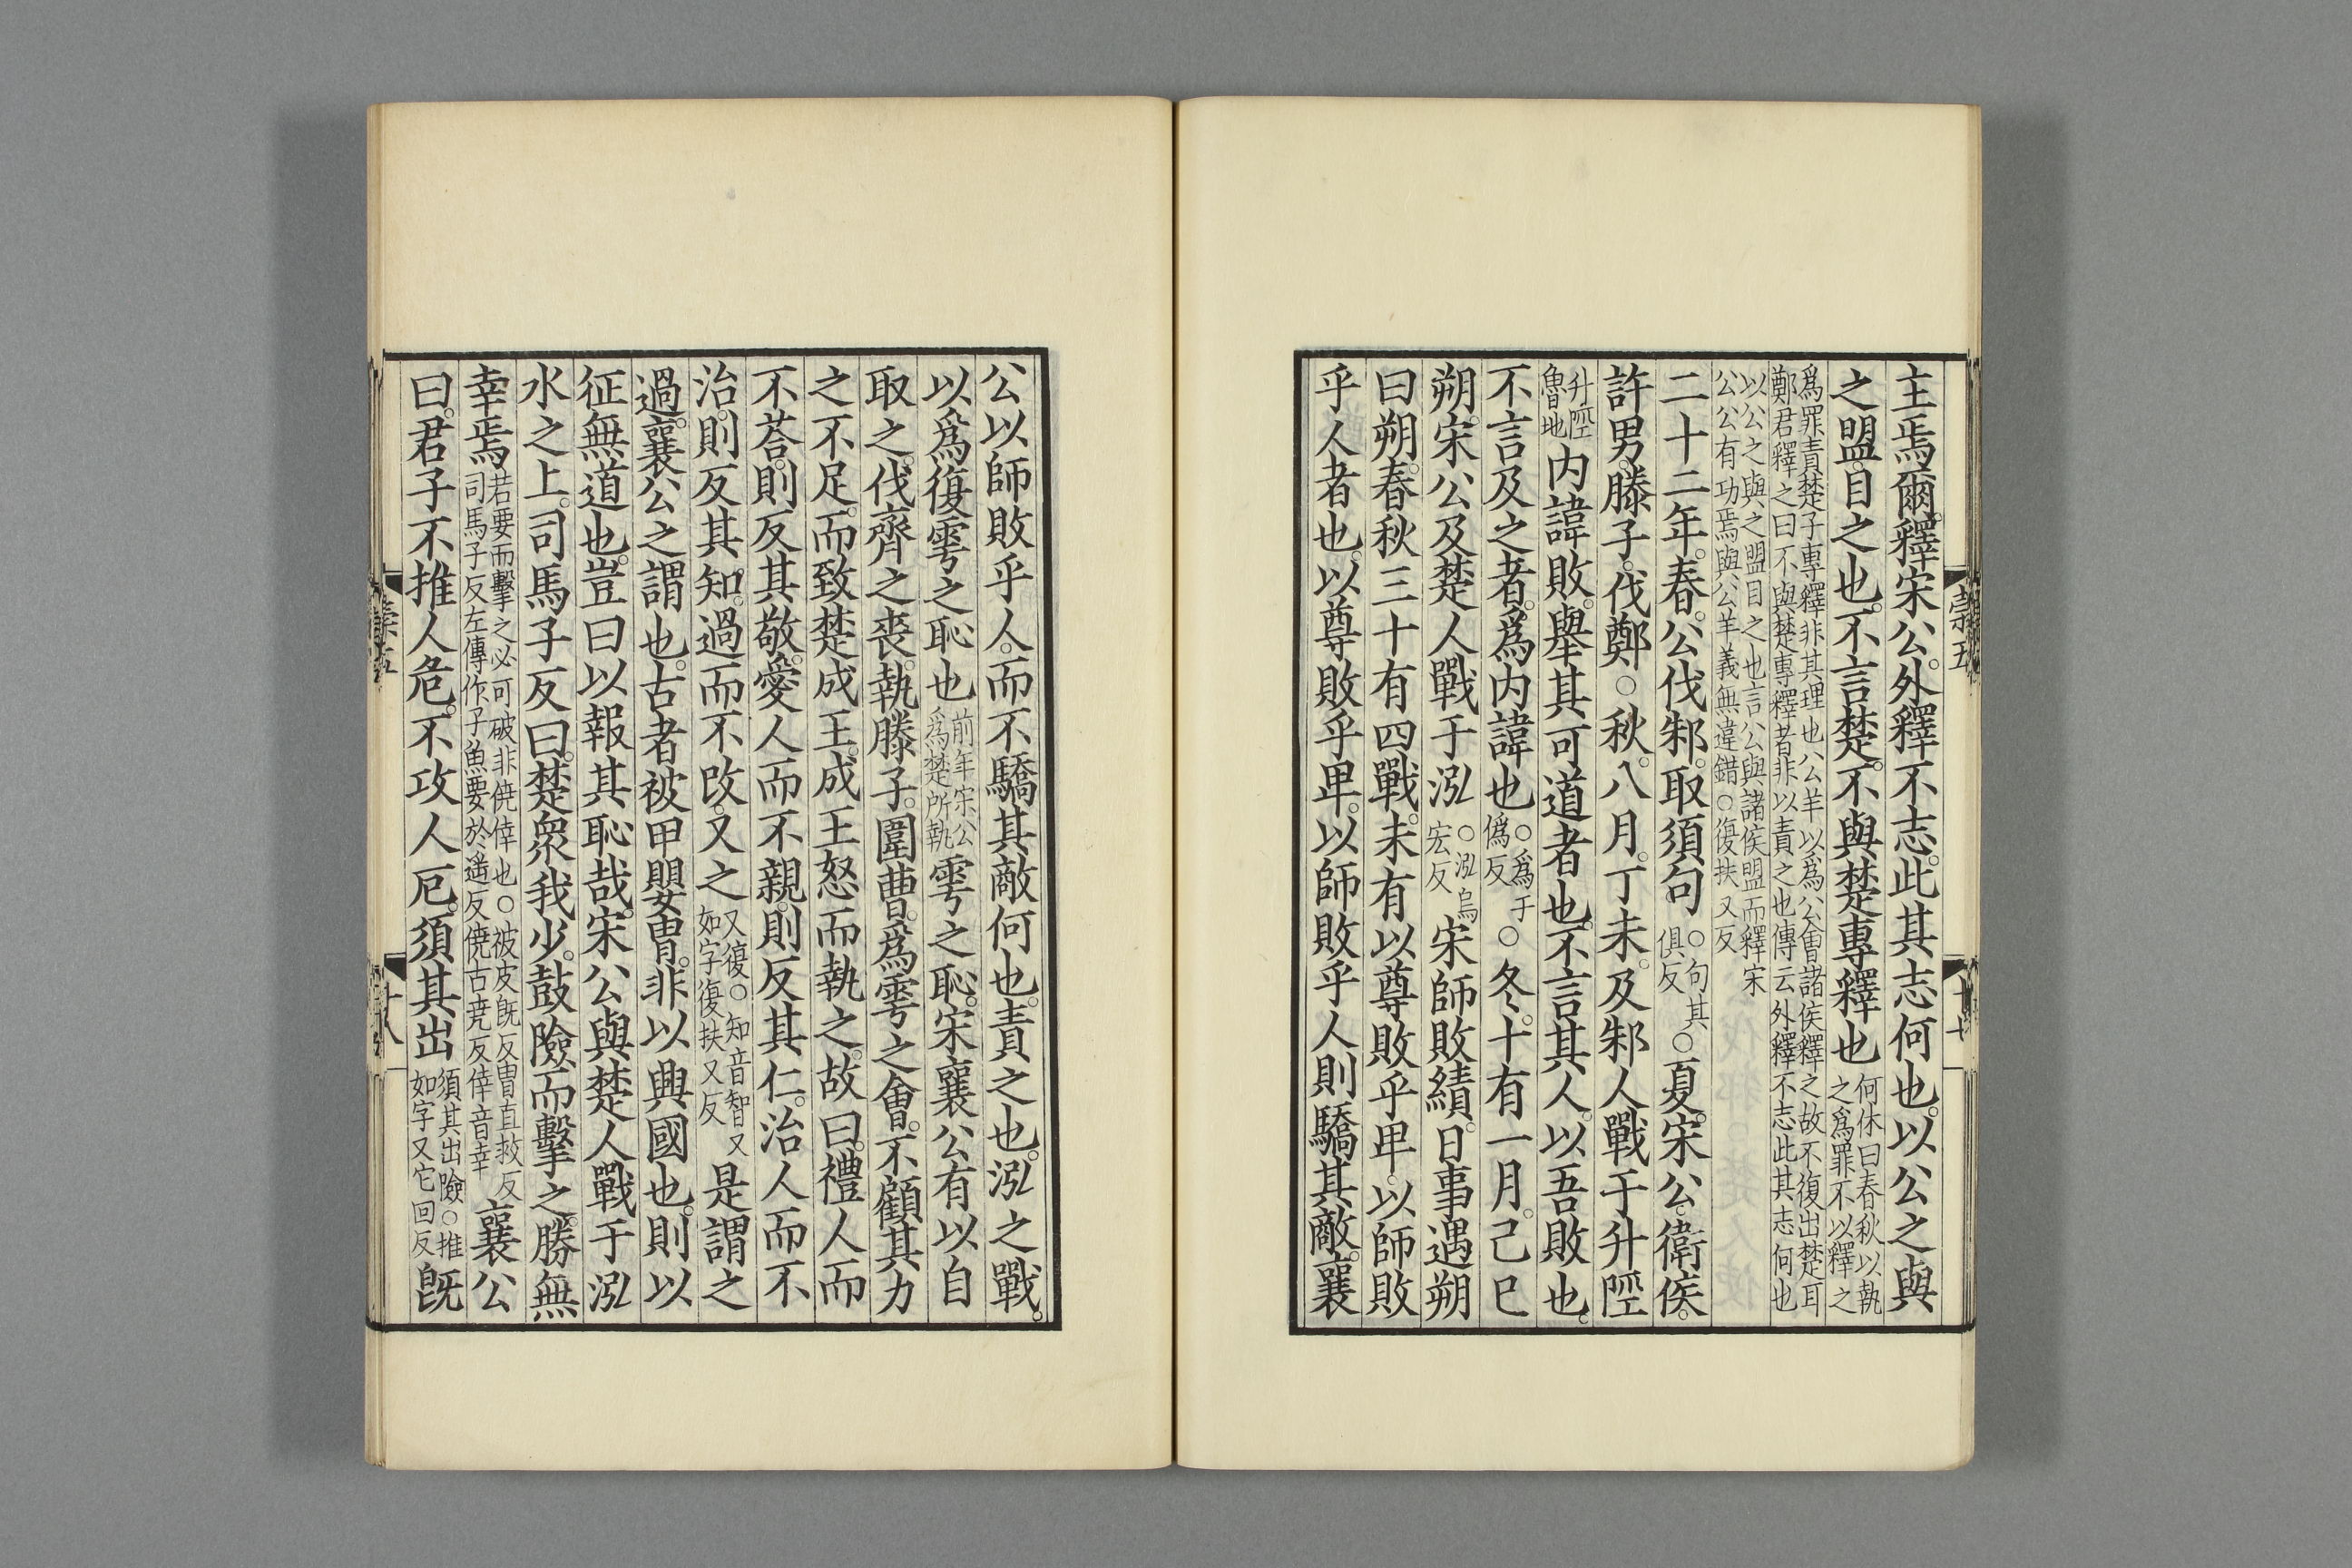 主焉爾。釋宋公。外釋不志。此其志何也。以公之與
之盟。目之也。不言楚。不與楚專釋也何休曰春秋以執
之爲罪不以釋之
爲罪責楚子專釋非其理也公羊以爲公會諸侯釋之故不復出楚耳
鄭君釋之曰不與楚專釋者非以責之也傳云外釋不志此其志何也
以公之與之盟目之也言公與諸侯盟而釋宋
公公有功焉與公羊義無違錯○復扶又反
二十二年。春。公伐邾。取須句○句其
俱反○夏。宋公。衛侯。
許男。滕子。伐鄭○秋。八月。丁未。及邾人戰于升陘
升陘
魯地內諱敗。舉其可道者也。不言其人。以吾敗也。
不言及之者。爲內諱也○爲于
僞反○冬。十有一月。己巳
朔。宋公及楚人戰于泓○泓烏
宏反宋師敗績。日事遇朔
曰朔。春秋三十有四戰。未有以尊敗乎卑。以師敗
乎人者也。以尊敗乎卑。以師敗乎人則驕其敵。襄
公以師敗乎人。而不驕其敵何也。責之也。泓之戰。
以爲復雩之恥也前年宋公
爲楚所執雩之恥。宋襄公有以自
取之。伐齊之喪。執滕子。圍曹。爲雩之會。不顧其力
之不足。而致楚成王。成王怒而執之。故曰。禮人而
不荅。則反其敬。愛人而不親。則反其仁。治人而不
治。則反其知。過而不改。又之又復○知音智又
如字復扶又反是謂之
過。襄公之謂也。古者被甲嬰冑。非以興國也。則以
征無道也。豈曰以報其恥哉。宋公與楚人戰于泓
水之上。司馬子反曰。楚衆我少。鼓險而擊之。勝無
幸焉若要而擊之必可破非僥倖也○被皮旣反冑直救反
司馬子反左傳作子魚要於遙反僥古堯反倖音幸襄公
曰。君子不推人危。不攻人厄。須其出須其出險○推
如字又它回反旣
榖五
十七
榖五
十八